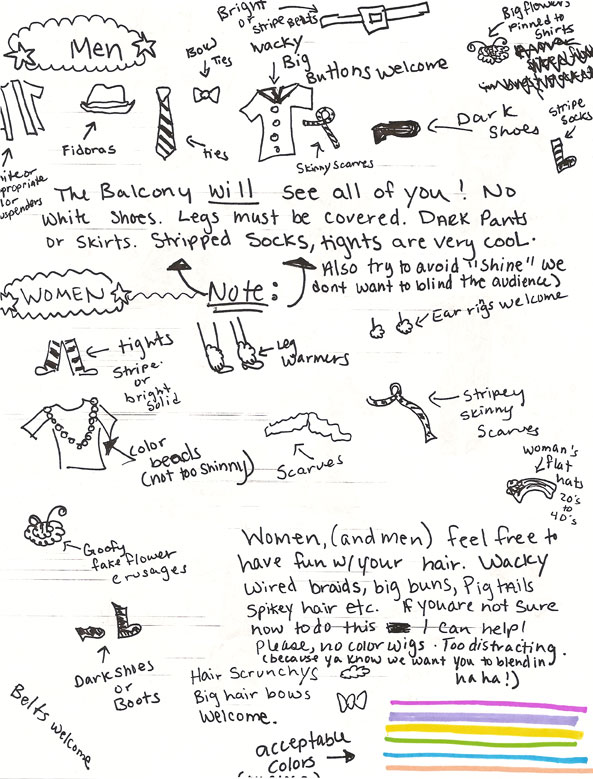 Bright
or
Stripe Belts
Big flowers
pinned to
shirts
Men
Bow
Ties
Wacky
Big
Buttons welcome
Fidoras
ties
Skinny Scarves
Dark
Shoes
Stripe
Socks
The Balcony Will see all of you! No
White Shoes. Legs must be covered. Dark Pants
or Skirts. Stripped Socks, tights are very cool.
Note:
Also try to avoid "shine" we
dont want to blind the audience)
WOMEN
Ear rigs welcome
tights
Stripe
or
bright
Solid
Leg
Warmers
Stripey
Skinny
Scarves
Color
beads
(not too shinny)
Scarves
woman's
flat
hats
20's
to
40's
Goofy
fake flower
crusages
Women, (and men) feel free to
have fun w/your hair. Wacky
Wired braids, big buns, Pigtails
Spikey hair etc. If you are not sure
how to do this I can help!
Please, no color wigs. Too distracting.
(because ya know we want you to blend in
haha!)
Dark shoes
or
Boots
Hair Scrunchys
Big hair bows
Welcome.
Belts welcome
acceptable
Colors